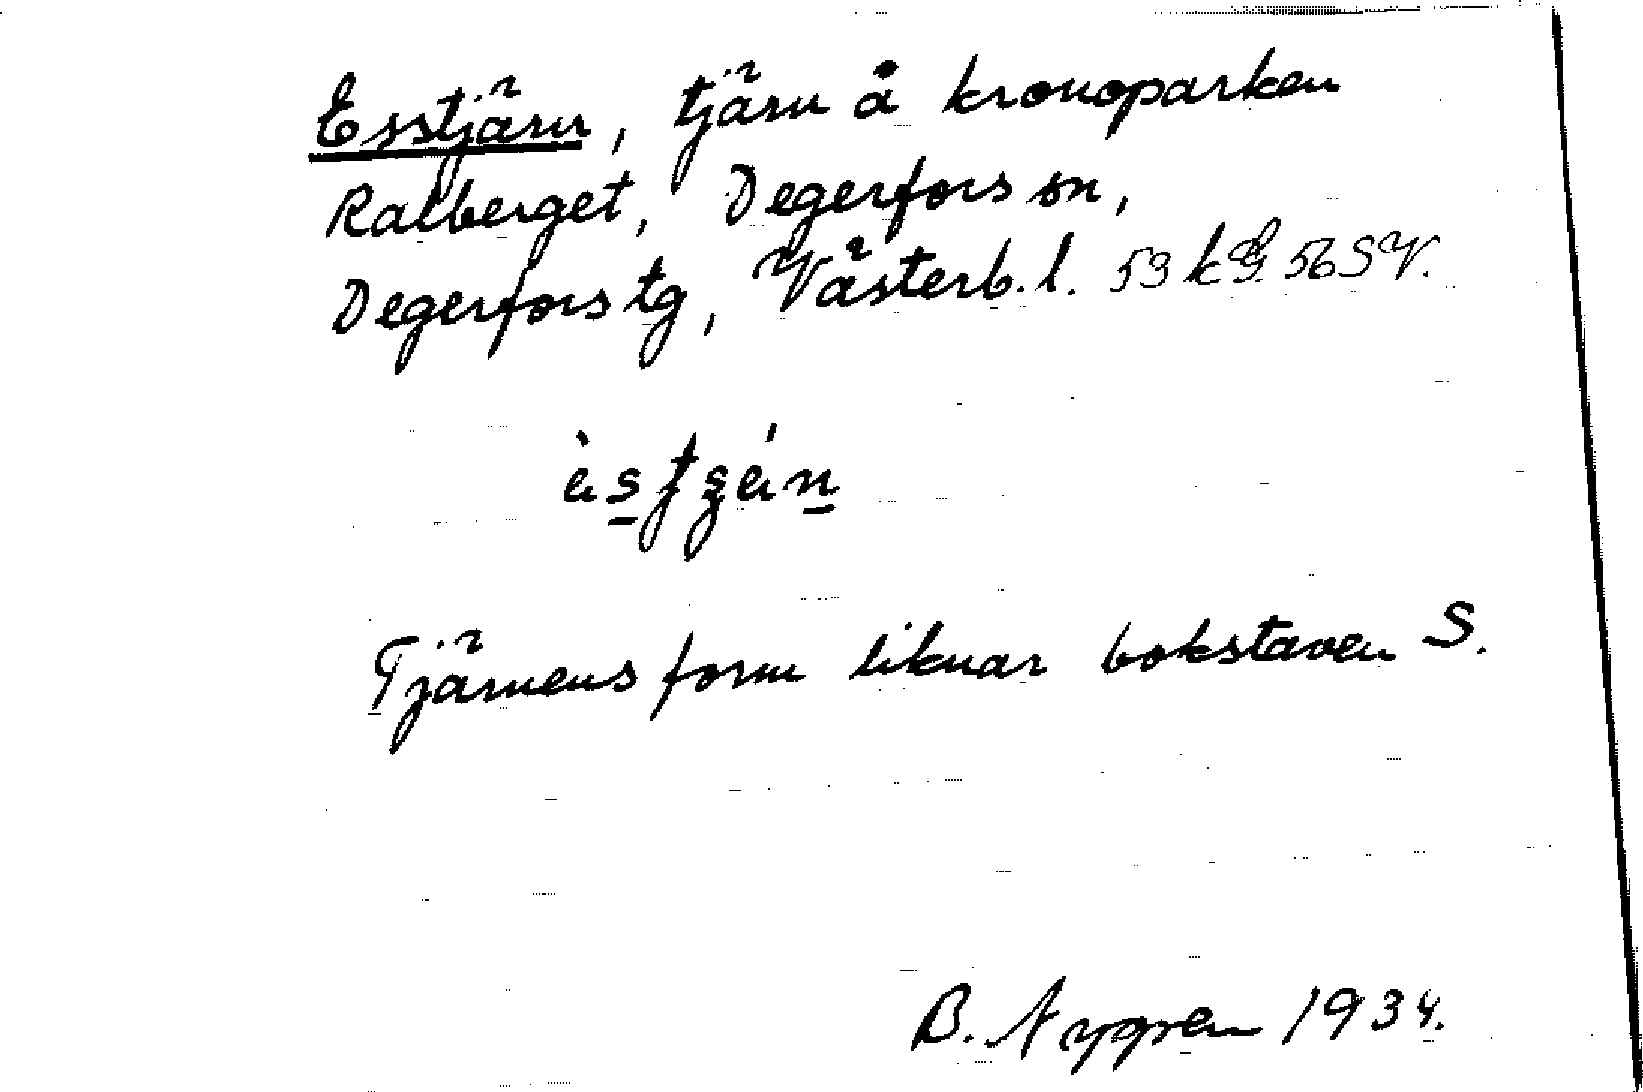 Esstjärn, tjärn å kronoparken
Ralberget, Degerfors sn,
Degerfors tg, Västerb. l. 53 56 SV.
Tjärnens form liknar bokstaven S.
B. Nygren 1934.